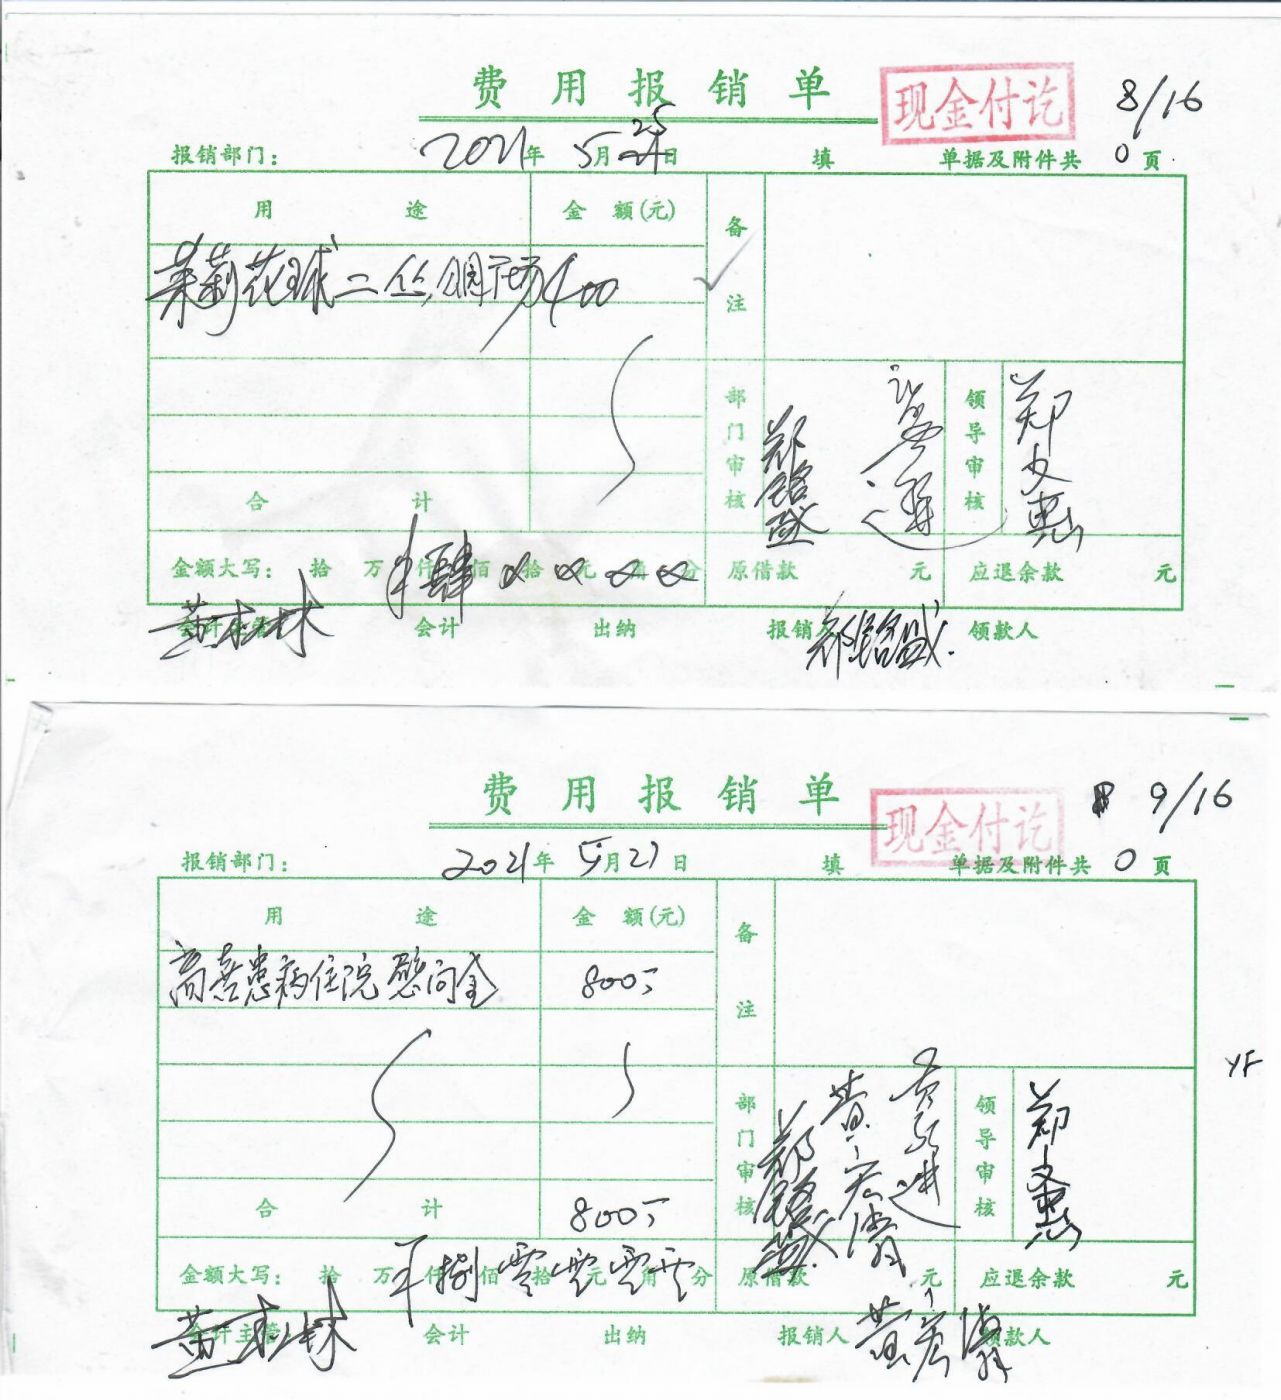 费用报销单
现金付讫
8/16
报销部门: 2021年5月25日 填 单据及附件共0页
用途 金额(元) 备注
茉莉花球二丛,公园广场 400
部门审核 郑铭盛 领导审核 郑文惠
合计
金额大写: 拾万仟肆佰拾元角分 原借款 元 应退余款 元
会计主管 会计 出纳 报销人 郑铭盛 领款人
费用报销单
现金付讫
9/16
报销部门: 2021年5月21日 填 单据及附件共0页
用途 金额(元) 备注
高喜患病住院慰问金 800
YF
部门审核 郑铭盛 领导审核 郑文惠
合计 800
金额大写: 拾万仟捌佰零拾零元零角零分 原借款 元 应退余款 元
会计主管 会计 出纳 报销人 领款人